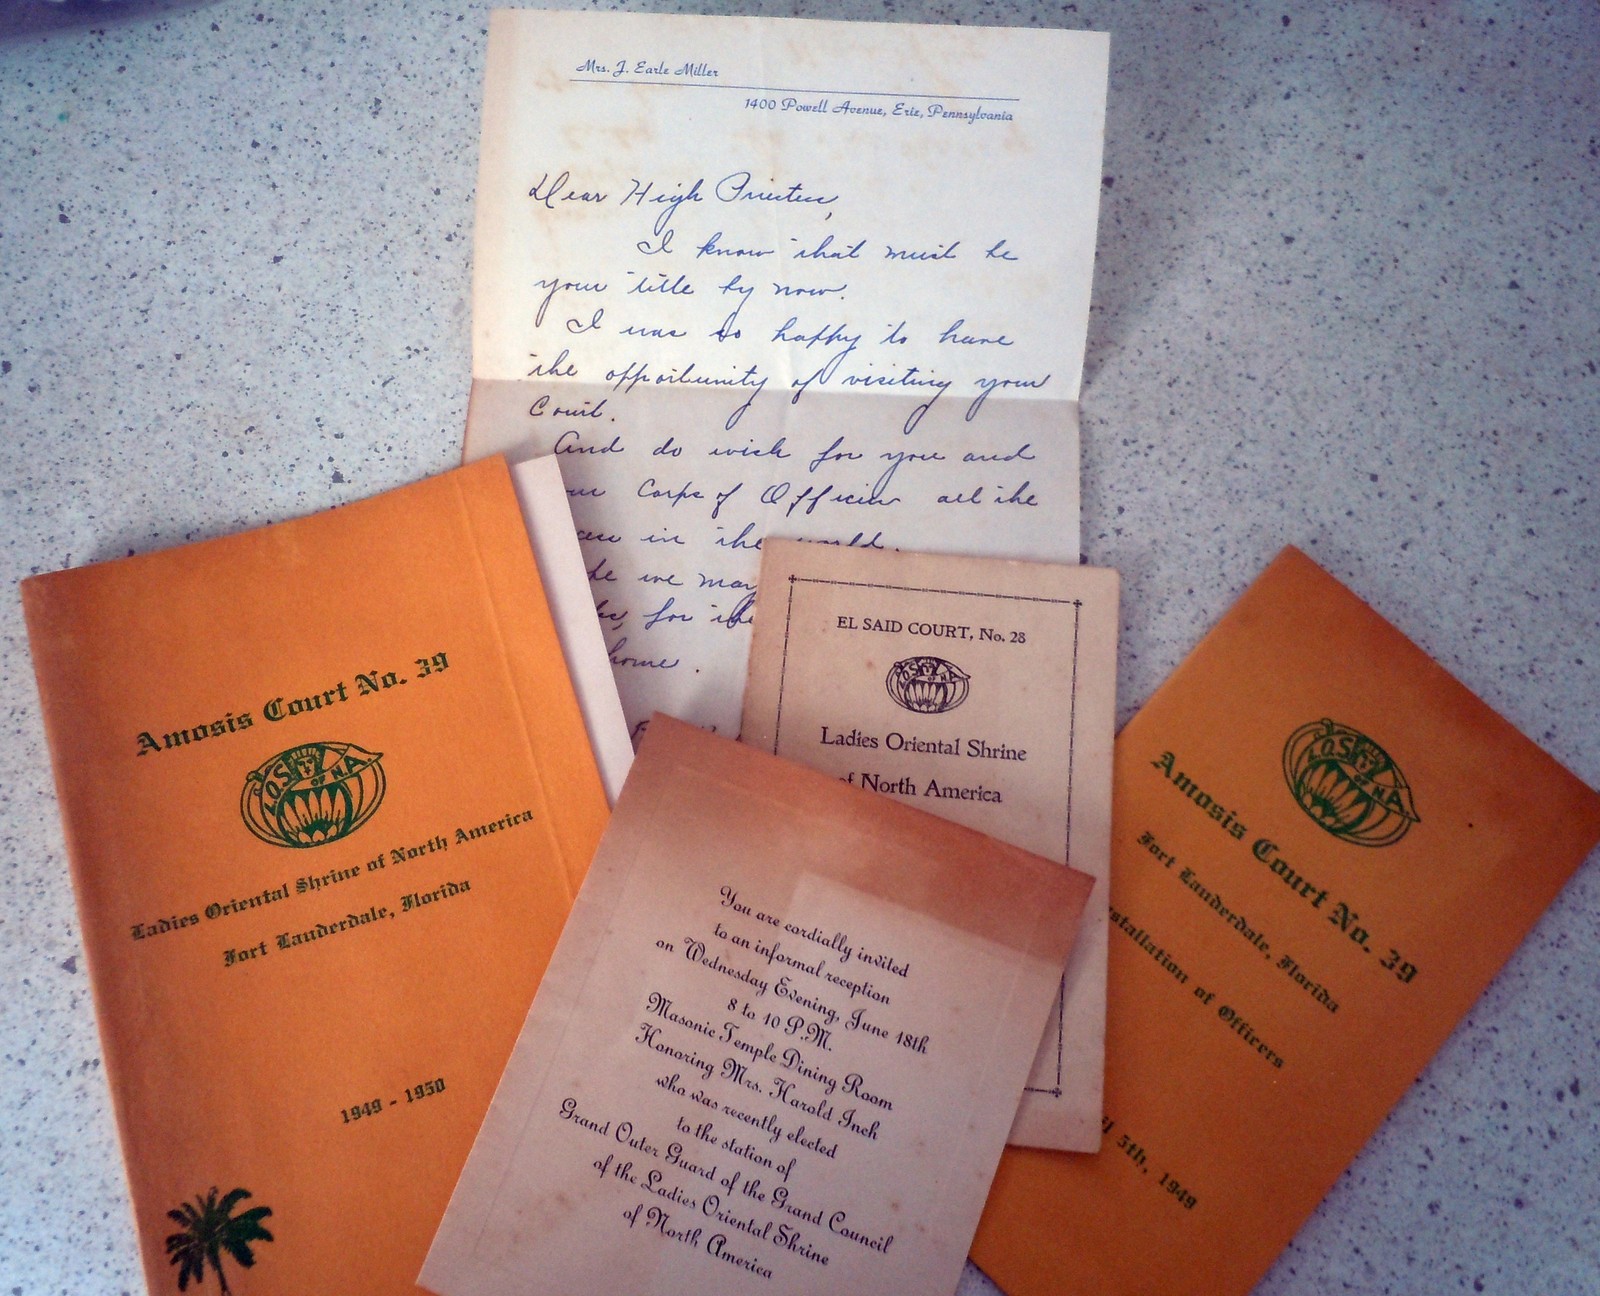 Mrs. J. Earle Miller
1400 Powell Avenue, Erie, Pennsylvania
Dear High Priestess,
I know that must be
your title by now.
I was so happy to have
the opportunity of visiting your
Court.
And do wish for you and
Corps of Officers all the
in the world.
we may
for the
home.
Amosis Court No. 39
L.O.S. OF N.A.
Ladies Oriental Shrine of North America
Fort Lauderdale, Florida
1949 - 1950
EL SAID COURT, No. 28
L.O.S. OF N.A.
Ladies Oriental Shrine
of North America
You are cordially invited
to an informal reception
on Wednesday Evening, June 18th
8 to 10 P.M.
Masonic Temple Dining Room
Honoring Mrs. Harold Inch
who was recently elected
to the station of
Grand Outer Guard of the Grand Council
of the Ladies Oriental Shrine
of North America
L.O.S. OF N.A.
Amosis Court No. 39
Fort Lauderdale, Florida
stallation of Officers
5th, 1949